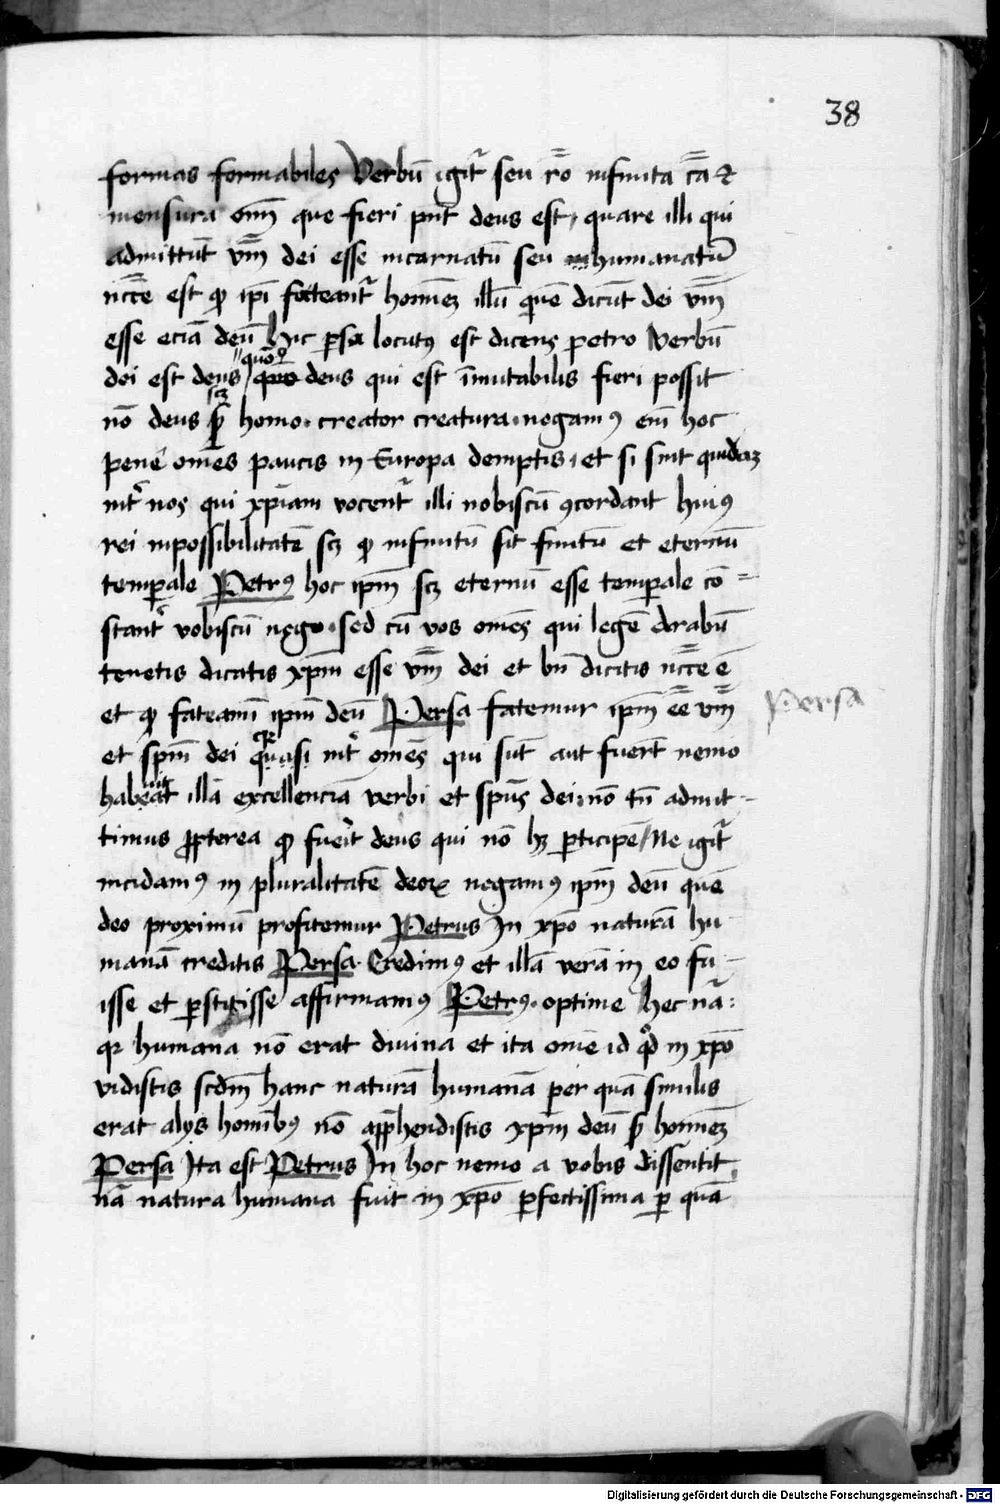 38
formas formabiles Verbū igit᷑ seu rō infinita cā &
mensura oīm que fieri pn̄t deus est, quare illi qui
admittūt v̄m dei esse incarnatū seu humanatū
nc̄ce est ꝙ ip̄i fateant᷑ hominēz illū quē dicūt dei v̄m
esse eciā deū Hic ꝑsa locutꝰ est dicens petro Verbū
dei est deus // quōº deus qui est īmutabilis fieri possit
nō deus sꝫ homo. creator creatura. negamꝰ em̄ hoc
penē omēs paucis in Europa demptis, et si sint quidaz
int᷑ nos qui xp̄iani vocent᷑ illi nobiscū ꝯcordant huiꝰ
rei inpossibilitatē scꝫ ꝙ infinitū sit finitū et eternū
temꝑale Petrꝰ hoc ip̄m scꝫ eternū esse temꝑale cō=
stant᷑ vobiscū nego. sed cū vos omēs qui legē Arabū
tenetis dicatis xp̄m esse v̄m dei et bn̄ dicitis nc̄ce ē
et ꝙ fateamī ip̄m deū Persa fatemur ip̄m ēe v̄m
Persa
et sp̄m dei quasi int᷑ omēs qui sūt aut fuerūt nemo
habeat illā excellenciā verbi et sp̄us dei. nō tn̄ admit=
timus ꝓpterea ꝙ fuerit deus qui nō hꝫ ꝑticipē / Ne igit᷑
incidamꝰ in pluralitatē deoꝝ negamꝰ ip̄m deū quē
deo proximū profitemur Petrus In xp̄o naturā hu
manā creditis Persa. Credimꝰ et illā verā in eo fu=
isse et ꝑstitisse affirmamꝰ Petrꝰ. optime hec nā:
qꝫ humana nō erat divina et ita omē id qd̓ in xp̄o
vidistis scd̄m hanc naturā humanā per quā similis
erat alijs hominibꝰ nō app̄hendistis xp̄m deū sꝫ hominēz
Persa Ita est Petrus In hoc nemo a vobis dissentit
nā natura humana fuit in xp̄o ꝑfectissima ꝑ quā
Digitalisierung gefördert durch die Deutsche Forschungsgemeinschaft - DFG